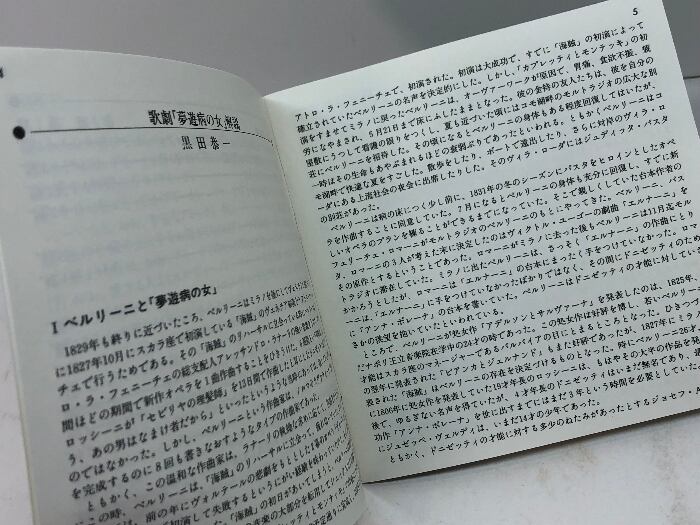 歌劇「夢遊病の女」解説
黒田恭一
I ベルリーニと「夢遊病の女」
1829年も終りに近づいたころ、ベルリーニはミラノを後にして
に1827年10月にスカラ座で初演している「海賊」の
チェで行うためである。その「海賊」のリハーサルに立会って
ロ・ラ・フェニーチェの総支配人アレッサンドロ・ラナーリ
間ほどの期間で新作オペラを1曲作曲することをひきうけた。
ロッシーニが「セビリヤの理髪師」を13日間で作曲した
う、あの男はなまけ者だから」といったというような
のではなかった。しかし、ベルリーニという作曲家は、
を完成するのに8回も書きなおすようなタイプの作曲家であった。
ともかく、この温和な作曲家は、ラナーリの執拗な求めに応じ
この時、ベルリーニは、「海賊」のリハーサルに立会って、
は、前の年にヴォルテールの悲劇をもととした
初演して失敗するというにがい経験を
「海賊」の初日があいてしまうと、
の音楽の大部分を転用して
5
アトロ・ラ・フェニーチェで、初演された。初演は大成功で、すでに「海賊」の初演によって
確立されていたベルリーニの名声を決定的にした。しかし、「カプレッティとモンテッキ」の初
演をすませてミラノに戻ったベルリーニは、オーヴァーワークが原因で、胃痛、食欲不振、疲
労になやまされ、5月21日まで床にふしたままとなった。彼の金持の友人たちは、彼を自分の
屋敷にうつして看護の限りをつくし、夏も近づいた頃にはコモ湖畔のモルトラジオの広大な別
荘にベルリーニを招待した。その頃になるとベルリーニの身体もある程度回復してはいたが、
一時はその生命もあやぶまれるほどの衰弱ぶりであったといわれる。ともかくベルリーニはコ
モ湖畔で快適な夏をすごした。散歩をしたり、ボートで遠出したり、さらに対岸のヴィラ・ロ
ーダにある上流社会の夜会に出席したりした。そのヴィラ・ローダにはジュディッタ・パスタ
の別荘があった。
ベルリーニは病の床につく少し前に、1831年の冬のシーズンにパスタをヒロインとしたオペ
ラを作曲することに同意していた。7月になるとベルリーニの身体も充分に回復し、すでに新
しいオペラのプランを練ることができるまでになっていた。そこで親しくしていた台本作者の
フェリーチェ・ロマーニがモルトラジオのベルリーニのもとにやってきた。ベルリーニ、パス
タ、ロマーニの3人が考えた末に決定したのはヴィクトル・ユーゴーの劇曲「エルナーニ」を
その原作とするということであった。ロマーニがミラノに去った後もベルリーニは11月迄モル
トラジオに滞在していた。ミラノに出たベルリーニは、さっそく「エルナーニ」の作曲にとり
かかろうとしたが、ロマーニは「エルナーニ」の台本にまったく手をつけていなかった。ロマ
ーニは、「エルナーニ」に手をつけていなかったばかりではなく、その間にドニゼッティのため
に「アンナ・ボレーナ」の台本を書いていた。ベルリーニはドニゼッティの才能に対していさ
さかの羨望を抱いていたといわれている。
ところで、ベルリーニが処女作「アデルソンとサルヴィーニ」を発表したのは、1825年、ま
だナポリ王立音楽院在学中の24才の時であった。この処女作は好評を博し、若いベルリーニの
才能はスカラ座のマネージャーであるバルバイアの目にとまるところとなった。ひきつづ
の翌年に発表された「ビアンカとジェルナンド」もまた好評であったが、1827年にミラノ
表された「海賊」はベルリーニの存在を決定づけるものとなった。時にベルリーニ26才
に1806年に処女作を発表していた19才年長のロッシーニは、もはやその大半の作品を発
後で、ゆるぎない名声を得ていたが、4才年長のドニゼッティはいまだ無名であり、
功作「アンナ・ボレーナ」を世に出すまでにはまだ3年という時間を必要としていた。
にジュゼッペ・ヴェルディは、いまだ14才の少年であった。
ともかく、ドニゼッティの才能に対する多少のねたみがあったとするジョセフ・